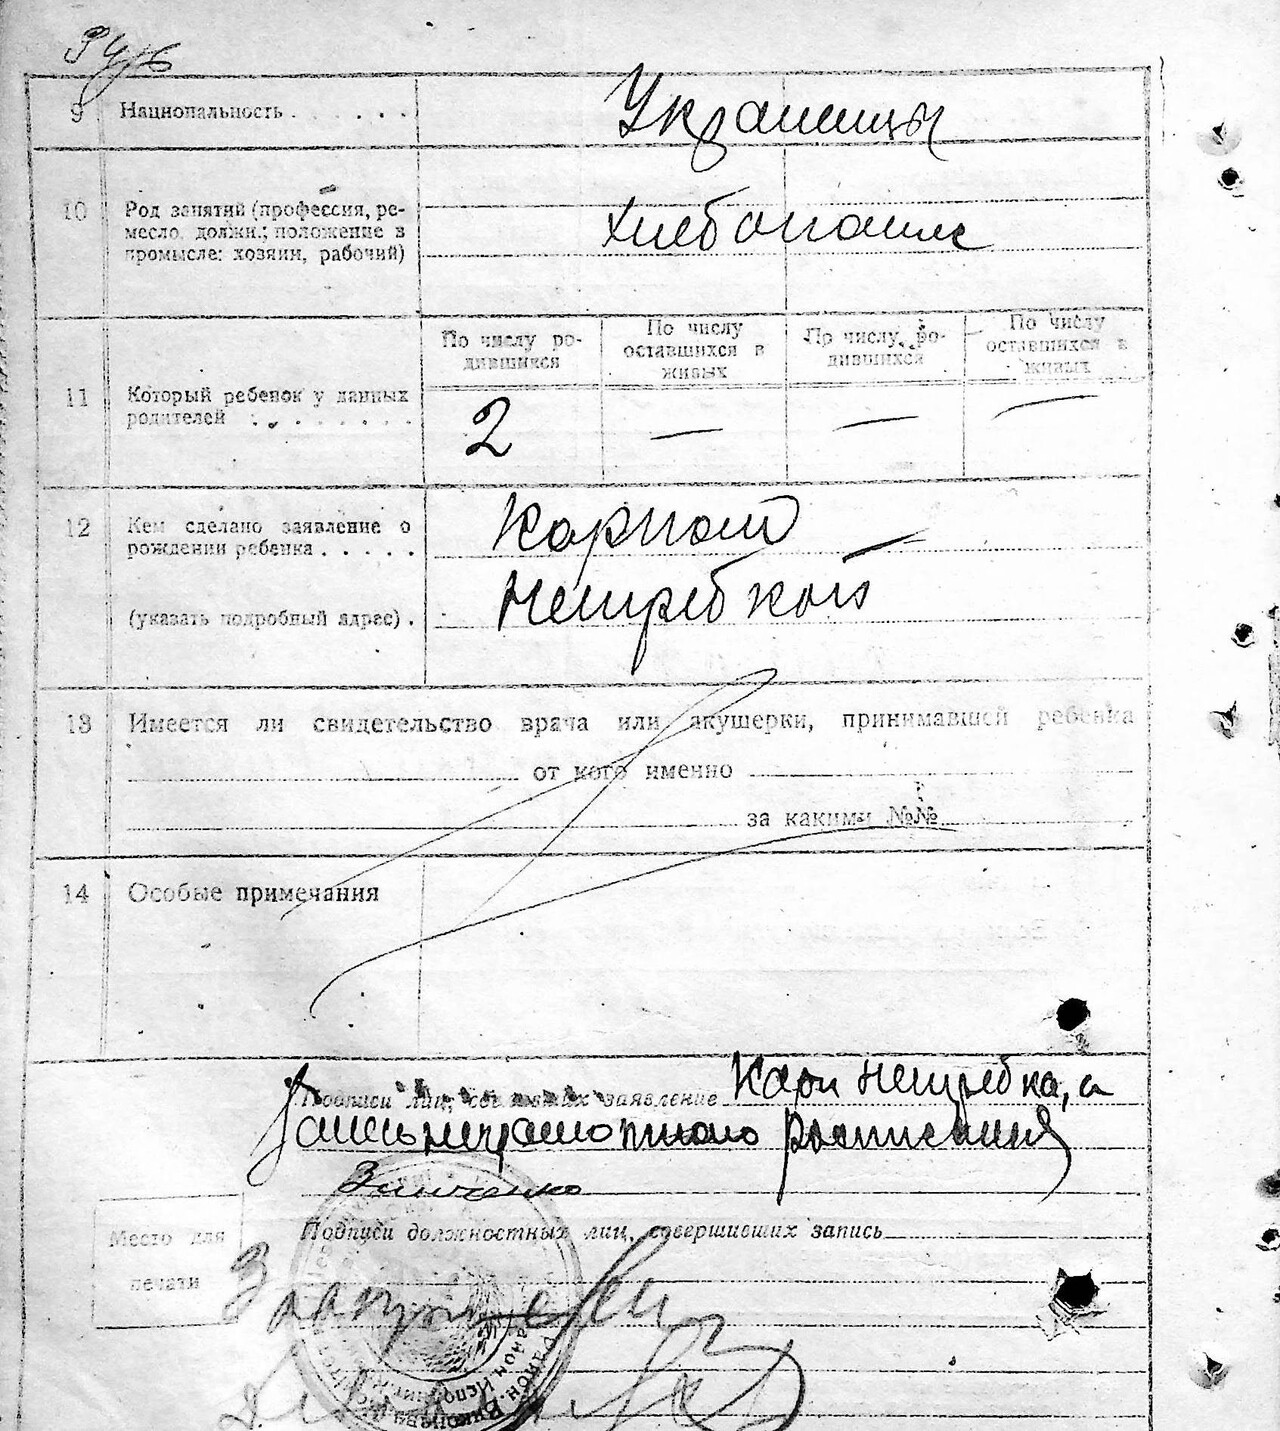 9 Национальность . . . . . . Украинцы
10 Род занятий (профессия, ре-
месло, должн.; положение в
промысле: хозяин, рабочий)
хлебопашц
По числу ро-
дившихся
По числу
оставшихся в
живых
По числу ро-
дившихся
По числу
оставшихся в
живых
11 Который ребенок у данных
родителей
2 — — —
12 Кем сделано заявление о
рождении ребенка . . . . .
Карпом
(указать подробный адрес) .
Нетребкой
13 Имеется ли свидетельство врача или акушерки, принимавшей ребенка
от кого именно
за какими №№
14 Особые примечания
Подписи лиц, сделавших заявление Карп Нетребка, а
за неграмотного расписался
Зинченко
Место для
печати
Подписи должностных лиц, совершивших запись